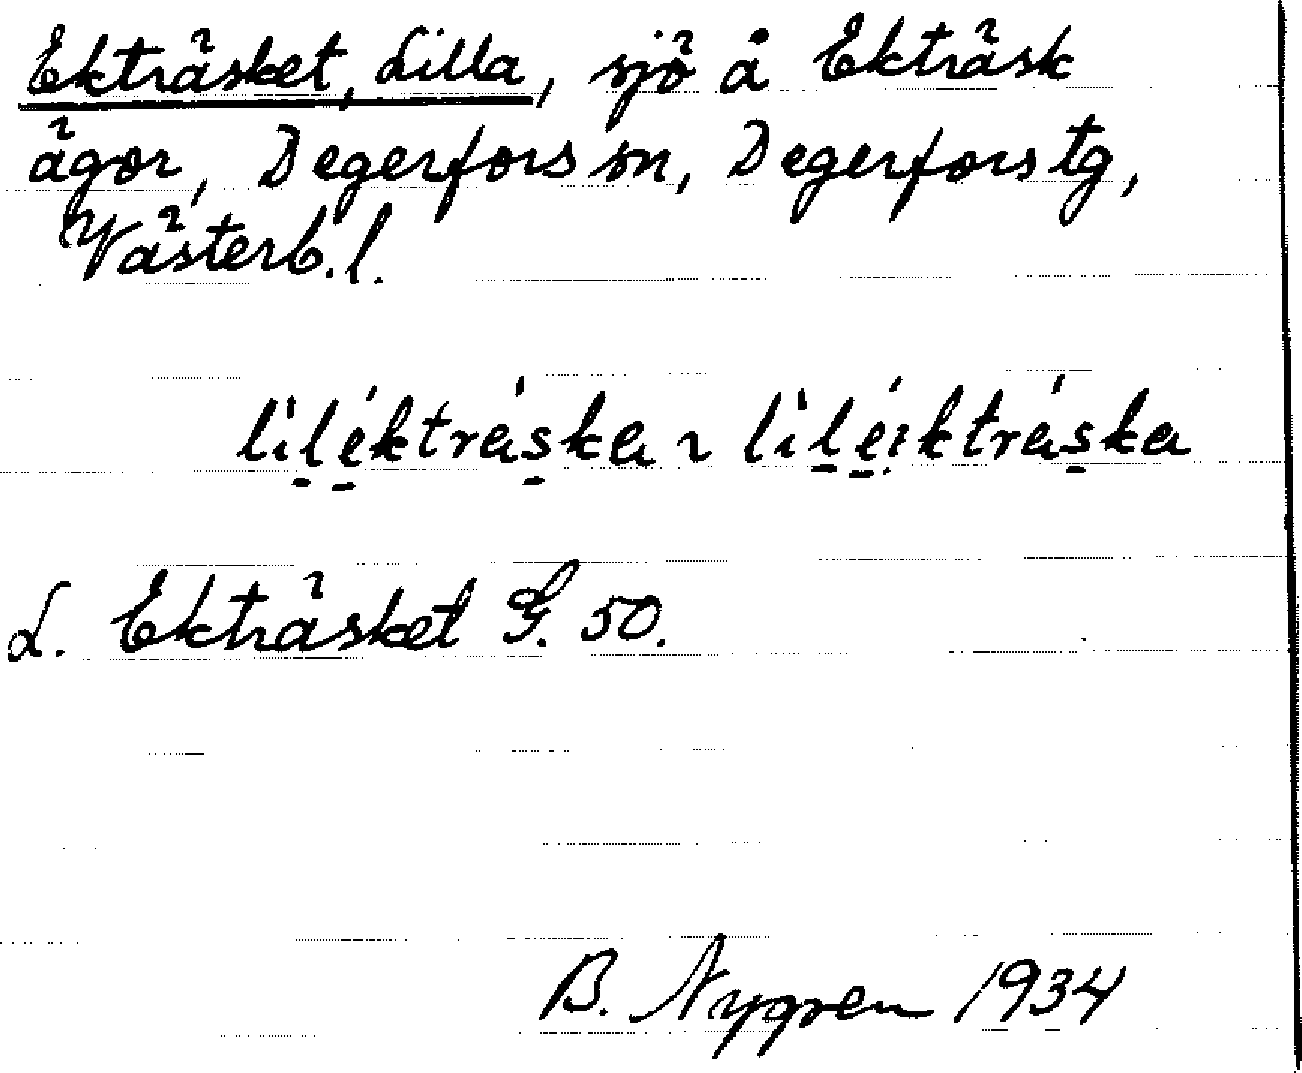 Ekträsket, Lilla, sjö å Ekträsk
ägor, Degerfors sn, Degerfors tg,
Västerb. l.
lìlékträ̀ska ~ lìléikträ̀ska
L. Ekträsket G. 50.
B. Nygren 1934